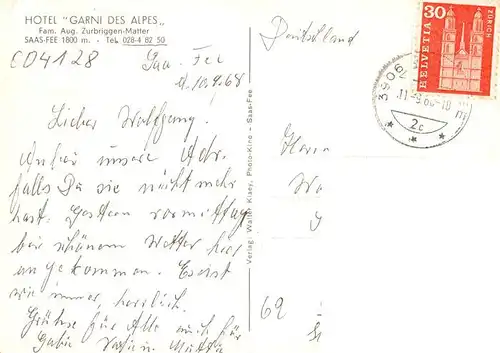 HOTEL "GARNI DES ALPES„
Fam. Aug. Zurbriggen-Matter
SAAS-FEE 1800 m. - Tel. 028-4 82 50
CO4128
Saa-Fee
d. 10.9.68
Lieber Wolfgang.
Anbei unsere Adr.
falls Du sie nicht mehr
hast. Gestern vormittag
bei schönem Wetter hier
angekommen. Es ist
wie immer herrlich.
Grüsse für Alle auch für
Gabi
Verlag: Walter Klaey, Photo-Kino - Saas-Fee
Deutschland
30
HELVETIA
ZÜRICH
3906
11-9.68-18
2c
69